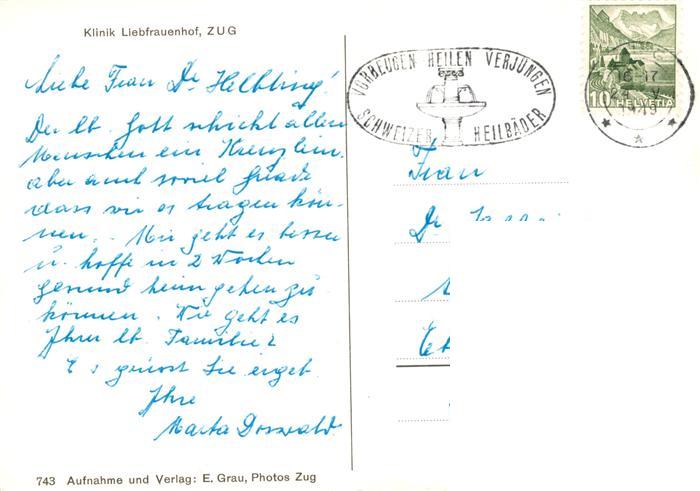 Klinik Liebfrauenhof, ZUG
Liebe Frau Dr Helbling!
Der lb. Gott schickt allen
Menschen ein Kreuzlein.
aber auch soviel Gnade
dass wir es tragen kön-
nen. Mir geht es besser
u. hoffe in 2 Wochen
gesund heim gehen zu
können. Wie geht es
Ihrer lb. Familie?
Es grüsst Sie ergeb.
Ihre
Marta Dosswald
743 Aufnahme und Verlag: E. Grau, Photos Zug
VORBEUGEN HEILEN VERJÜNGEN
SCHWEIZER HEILBÄDER
10 HELVETIA
16-17
24. V.
1949
Frau
Dr